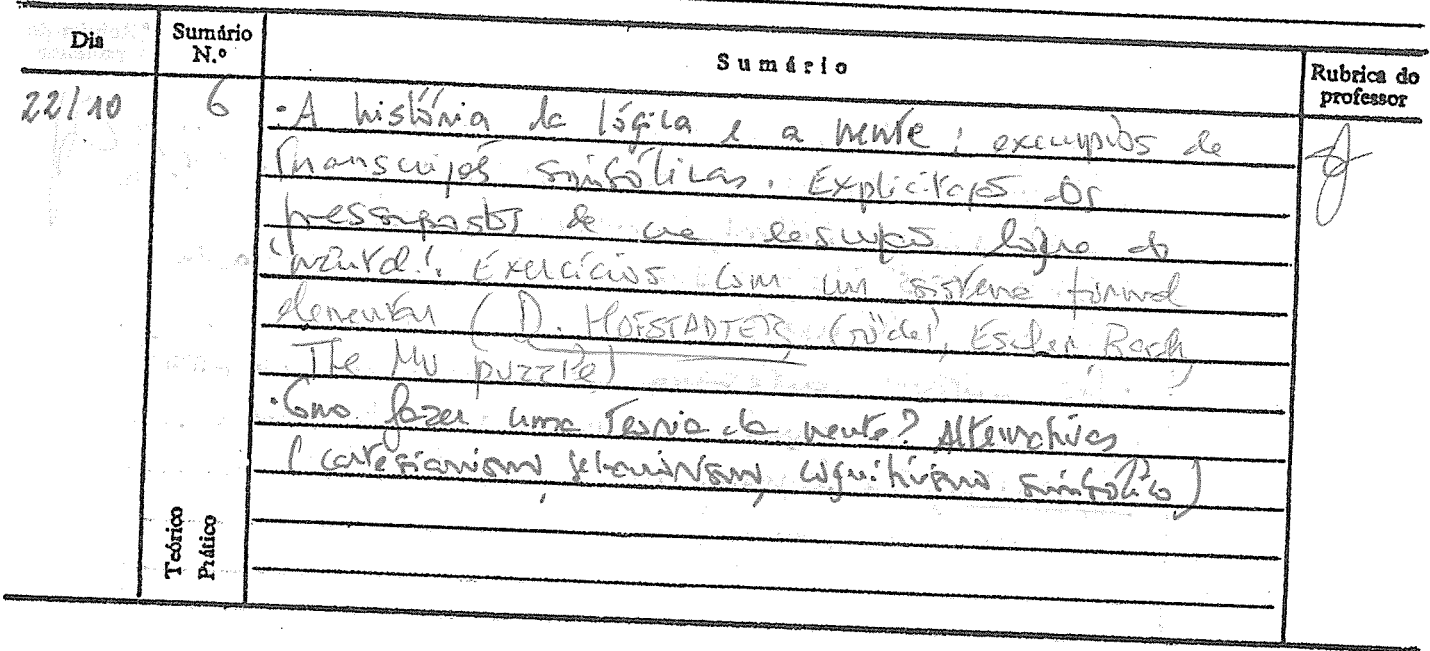 Dia
Sumário N.º
Sumário
Rubrica do professor
22/10
6
· A história da lógica e a mente: exemplos de
transcrições simbólicas. Explicitação dos
pressupostos de uma descrição lógica do
'mental'. Exercícios com um sistema formal
elementar (D. HOFSTADTER, Gödel, Escher, Bach,
The MU puzzle)
· Como fazer uma Teoria da mente? Alternativas
(cartesianismo, behaviorismo, cognitivismo simbólico)
Teórico
Prático